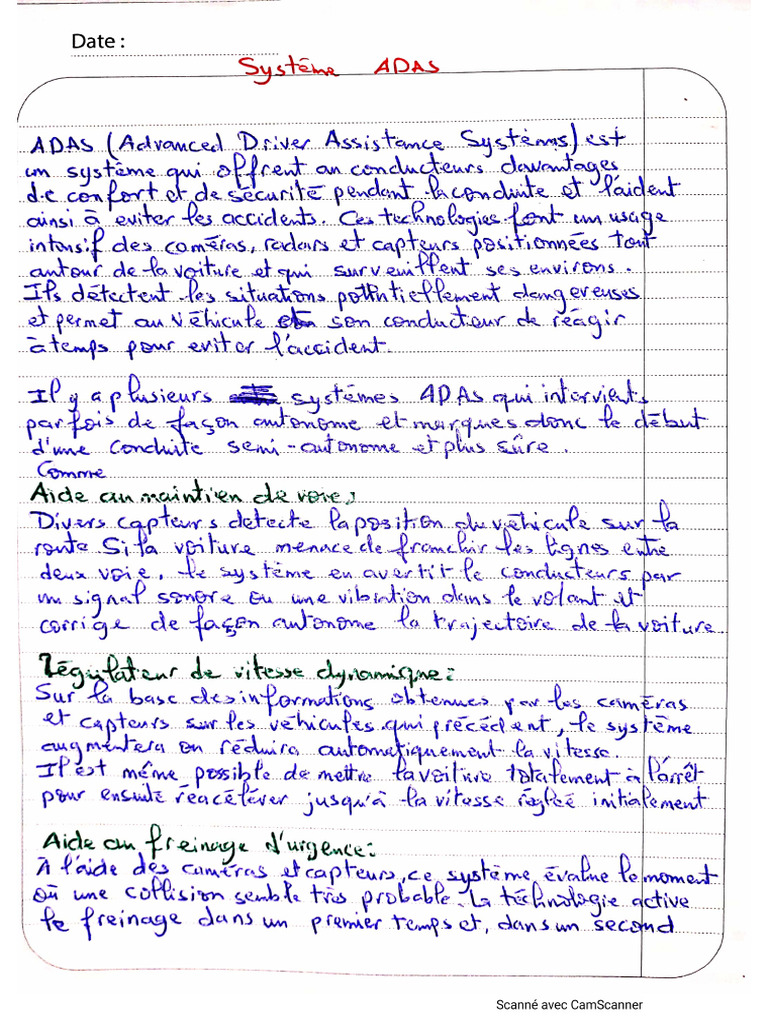 Date :
Système ADAS
ADAS (Advanced Driver Assistance Systèms) est
un système qui offrent au conducteurs davantages
de confort et de sécurité pendant la conduite et l'aident
ainsi à eviter les accidents. Ces technologies font un usage
intensif des caméras, radars et capteurs positionnées tout
autour de la voiture et qui surveillent ses environs.
Ils détectent les situations potentiellement dangereuses
et permet au véhicule son conducteur de réagir
à temps pour eviter l'accident.
Il y a plusieurs systèmes ADAS qui intervients
parfois de façon autonome et marques donc le début
d'une conduite semi-autonome et plus sûre.
Comme
Aide au maintien de voie,
Divers capteurs detecte la position du véhicule sur la
route Si la voiture menace de franchir les lignes entre
deux voie, le système en avertit le conducteurs par
un signal sonore ou une vibration dans le volant et
corrige de façon autonome la trajectoire de la voiture
Régulateur de vitesse dynamique:
Sur la base des informations obtenues par les caméras
et capteurs sur les véhicules qui précédent, le système
augmentera ou réduira automatiquement la vitesse.
Il est même possible de mettre la voiture totalement à l'arrêt
pour ensuite réacélever jusqu'à la vitesse régleé initialement
Aide au freinage d'urgence:
À l'aide des caméras et capteurs, ce système évalue le moment
où une collision semble très probable. La téchnologie active
le freinage dans un premier temps et, dans un second
Scanné avec CamScanner